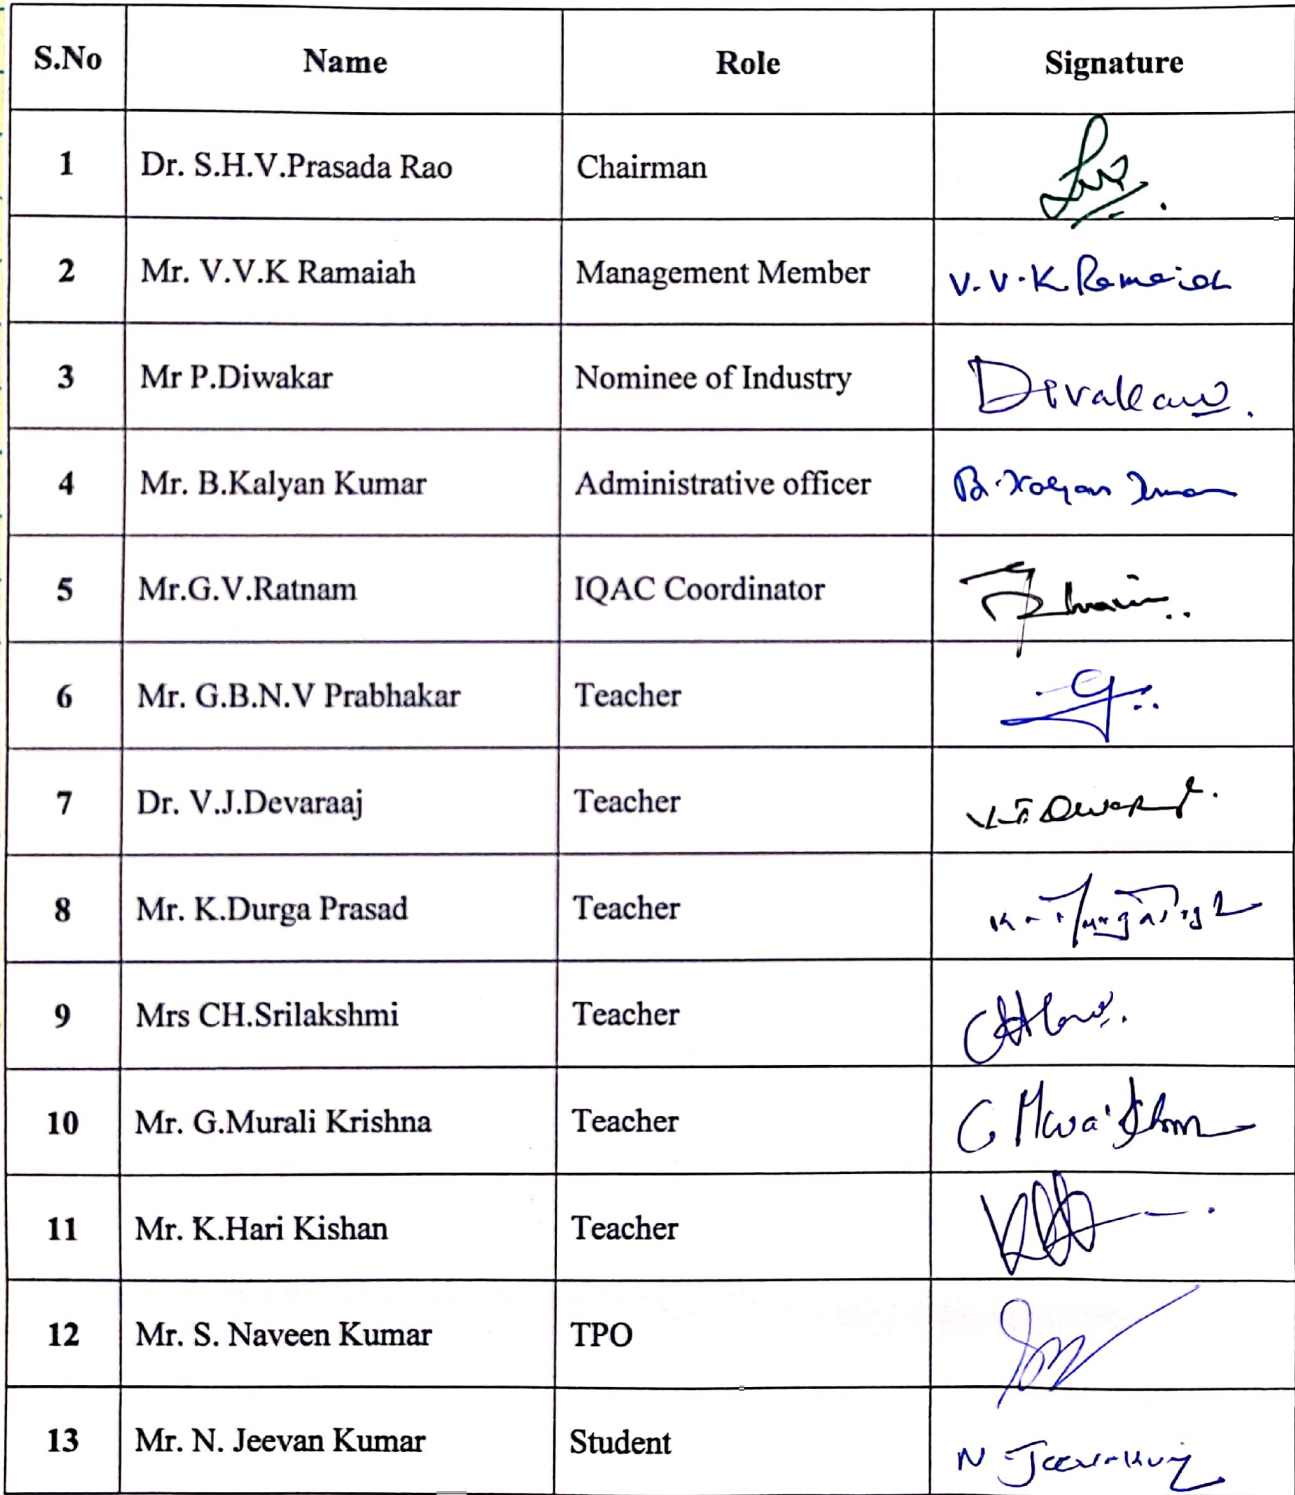 S.No Name Role Signature
1 Dr. S.H.V.Prasada Rao Chairman
2 Mr. V.V.K Ramaiah Management Member V.V.K Ramaiah
3 Mr P.Diwakar Nominee of Industry Divakar
4 Mr. B.Kalyan Kumar Administrative officer B.Kalyan Kumar
5 Mr.G.V.Ratnam IQAC Coordinator
6 Mr. G.B.N.V Prabhakar Teacher
7 Dr. V.J.Devaraaj Teacher
8 Mr. K.Durga Prasad Teacher
9 Mrs CH.Srilakshmi Teacher
10 Mr. G.Murali Krishna Teacher
11 Mr. K.Hari Kishan Teacher
12 Mr. S. Naveen Kumar TPO
13 Mr. N. Jeevan Kumar Student